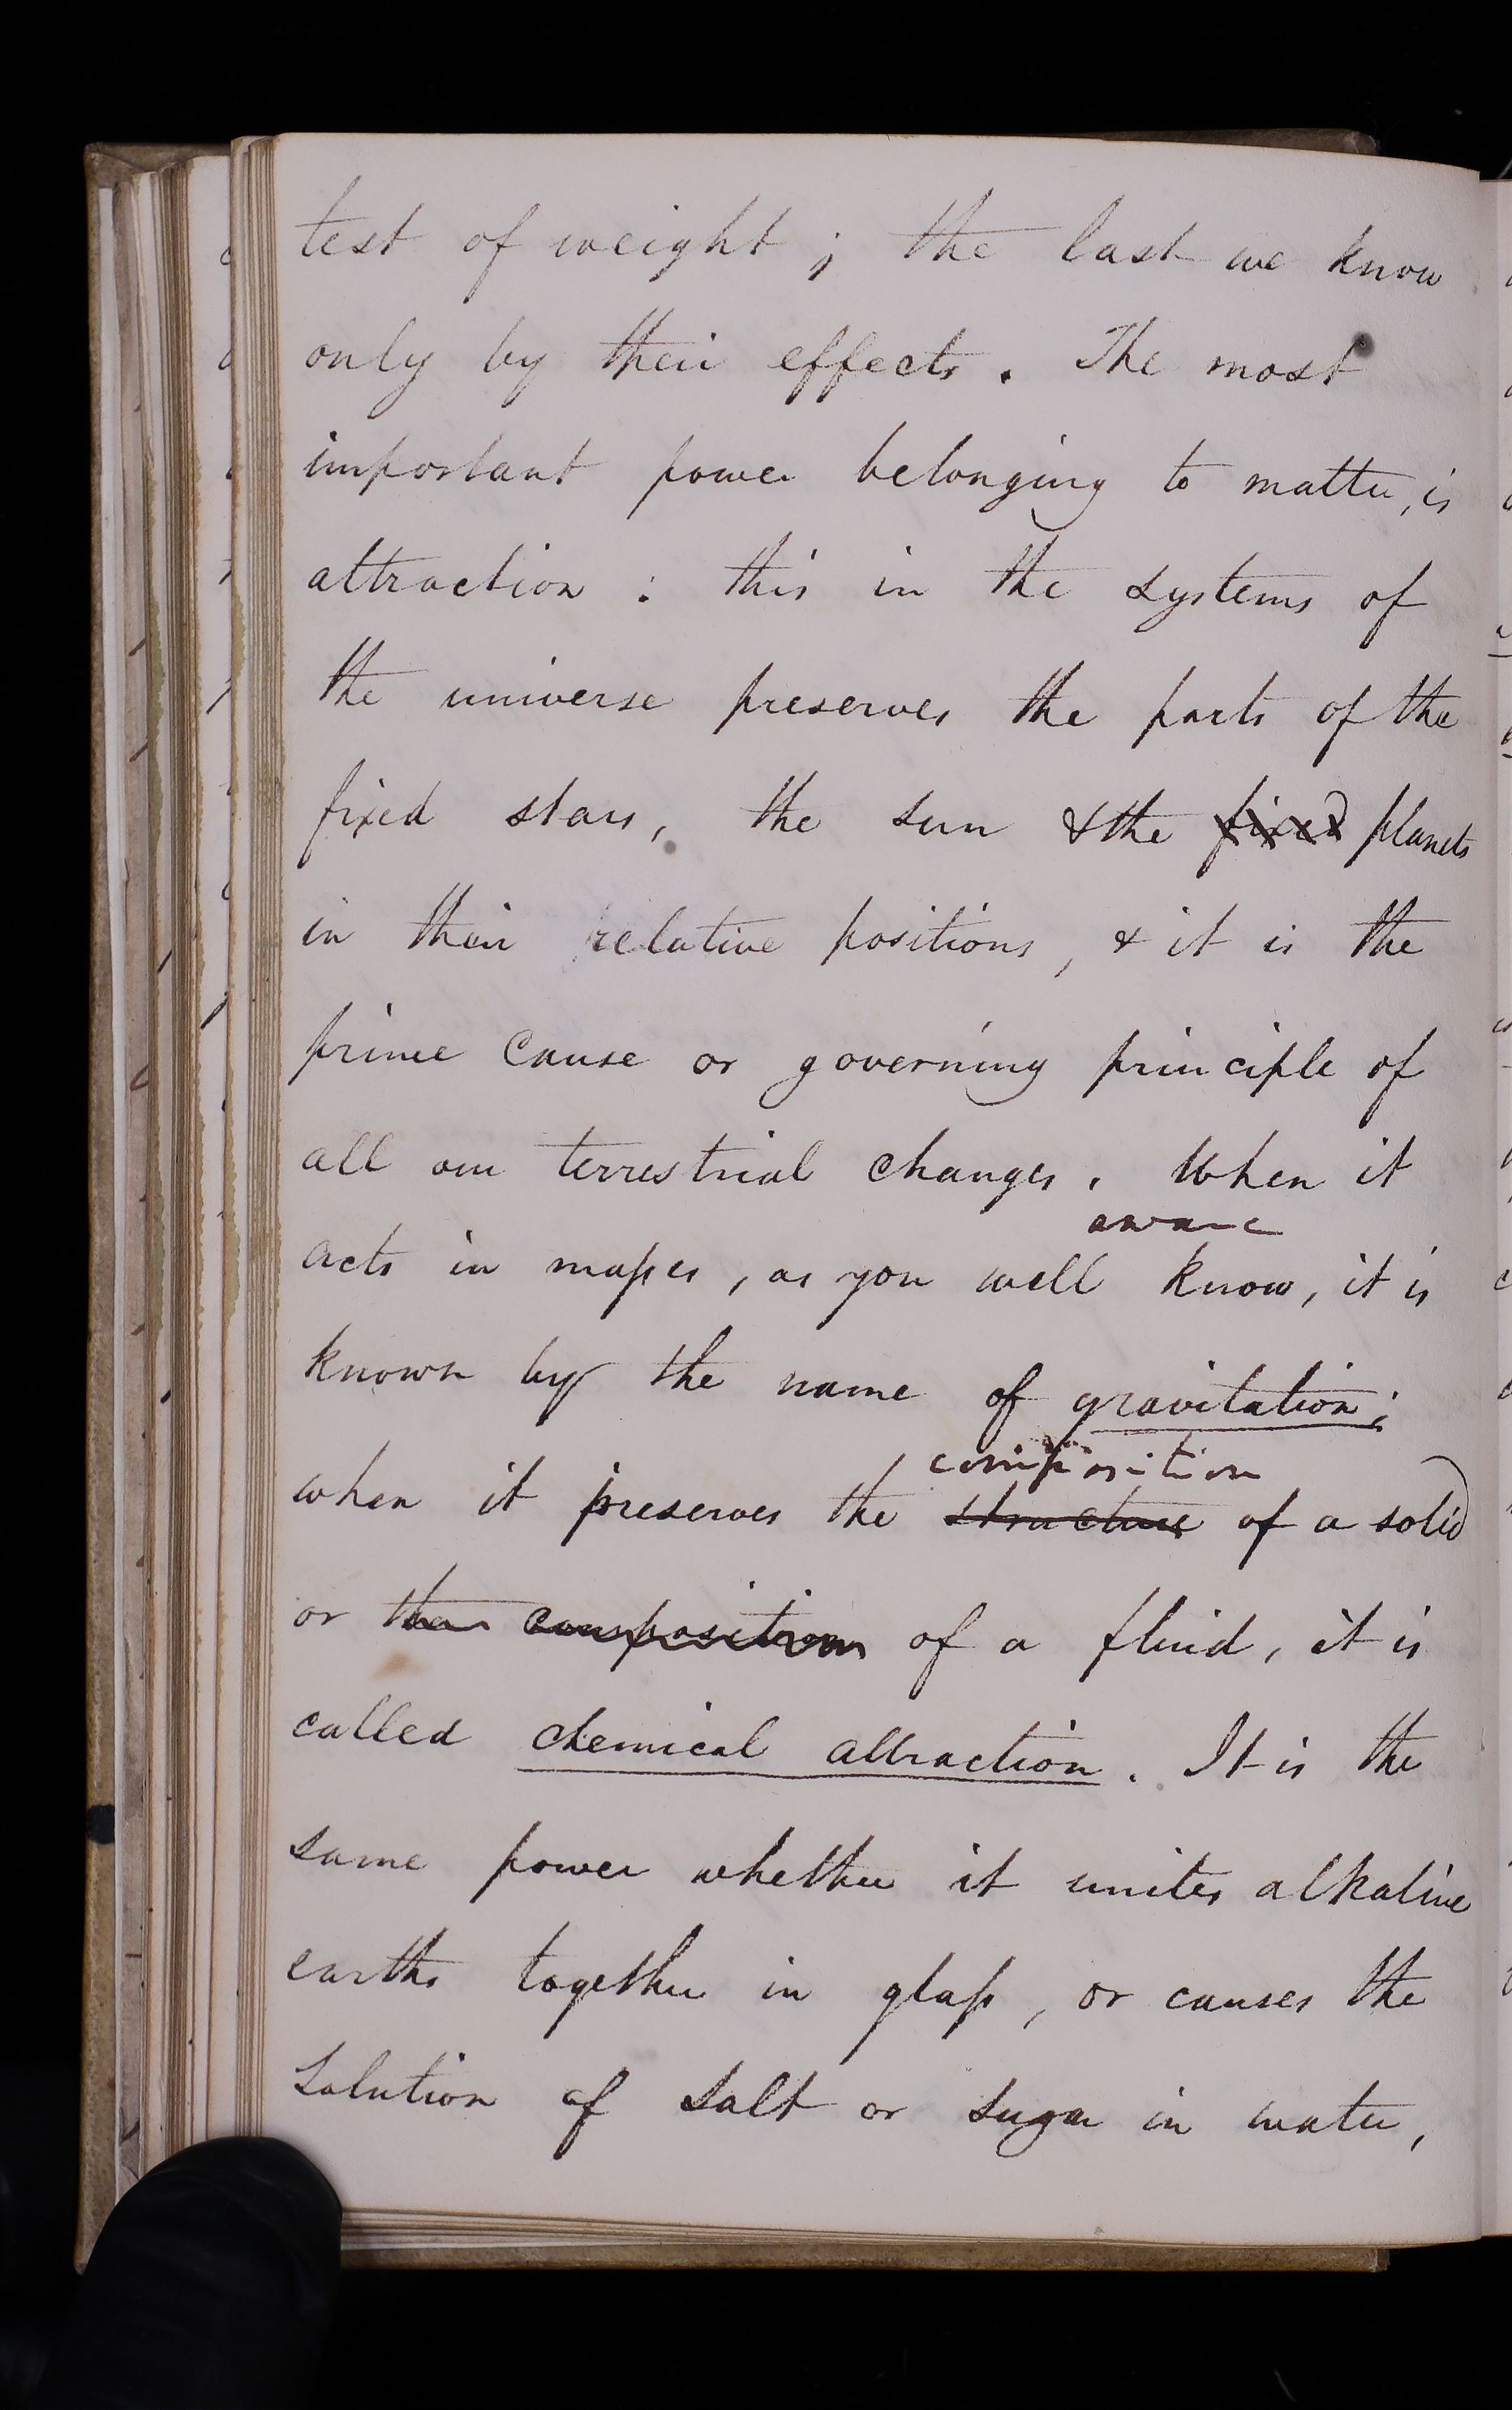 test of weight ; the last we know
only by their effects . The most
important power belonging to matter, is
attraction : this in the systems of
the universe preserves the parts of the
fixed stars, the sun & the fixed planets
in their relative positions, & it is the
prime cause or governing principle of
all our terrestrial changes . When it
aware
acts in maſses, as you well know, it is
known by the name of gravitation;
composition
when it preserves the structure of a solid
or the composition of a fluid, it is
called chemical attraction . It is the
same power whether it unites alkaline
earths together in glaſs, or causes the
solution of salt or sugar in water,